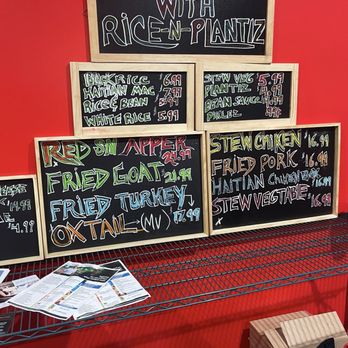 WITH
RICE-N-PLANTIZ
BLACK RICE 6.99
HAITIAN MAC 7.99
RICE & BEAN 5.99
WHITE RICE 5.99
STEW VEG 5.99
PLANTIZ
BEAN SAUCE
PIKLEZ
RED SNAPPER
24.99
FRIED GOAT 21.99
FRIED TURKEY
OXTAIL (MV) 17.99
STEW CHICKEN $16.99
FRIED PORK $16.99
HAITIAN CHICKEN $16.99
STEW VEGTABLE $16.99
$14.99
$14.99